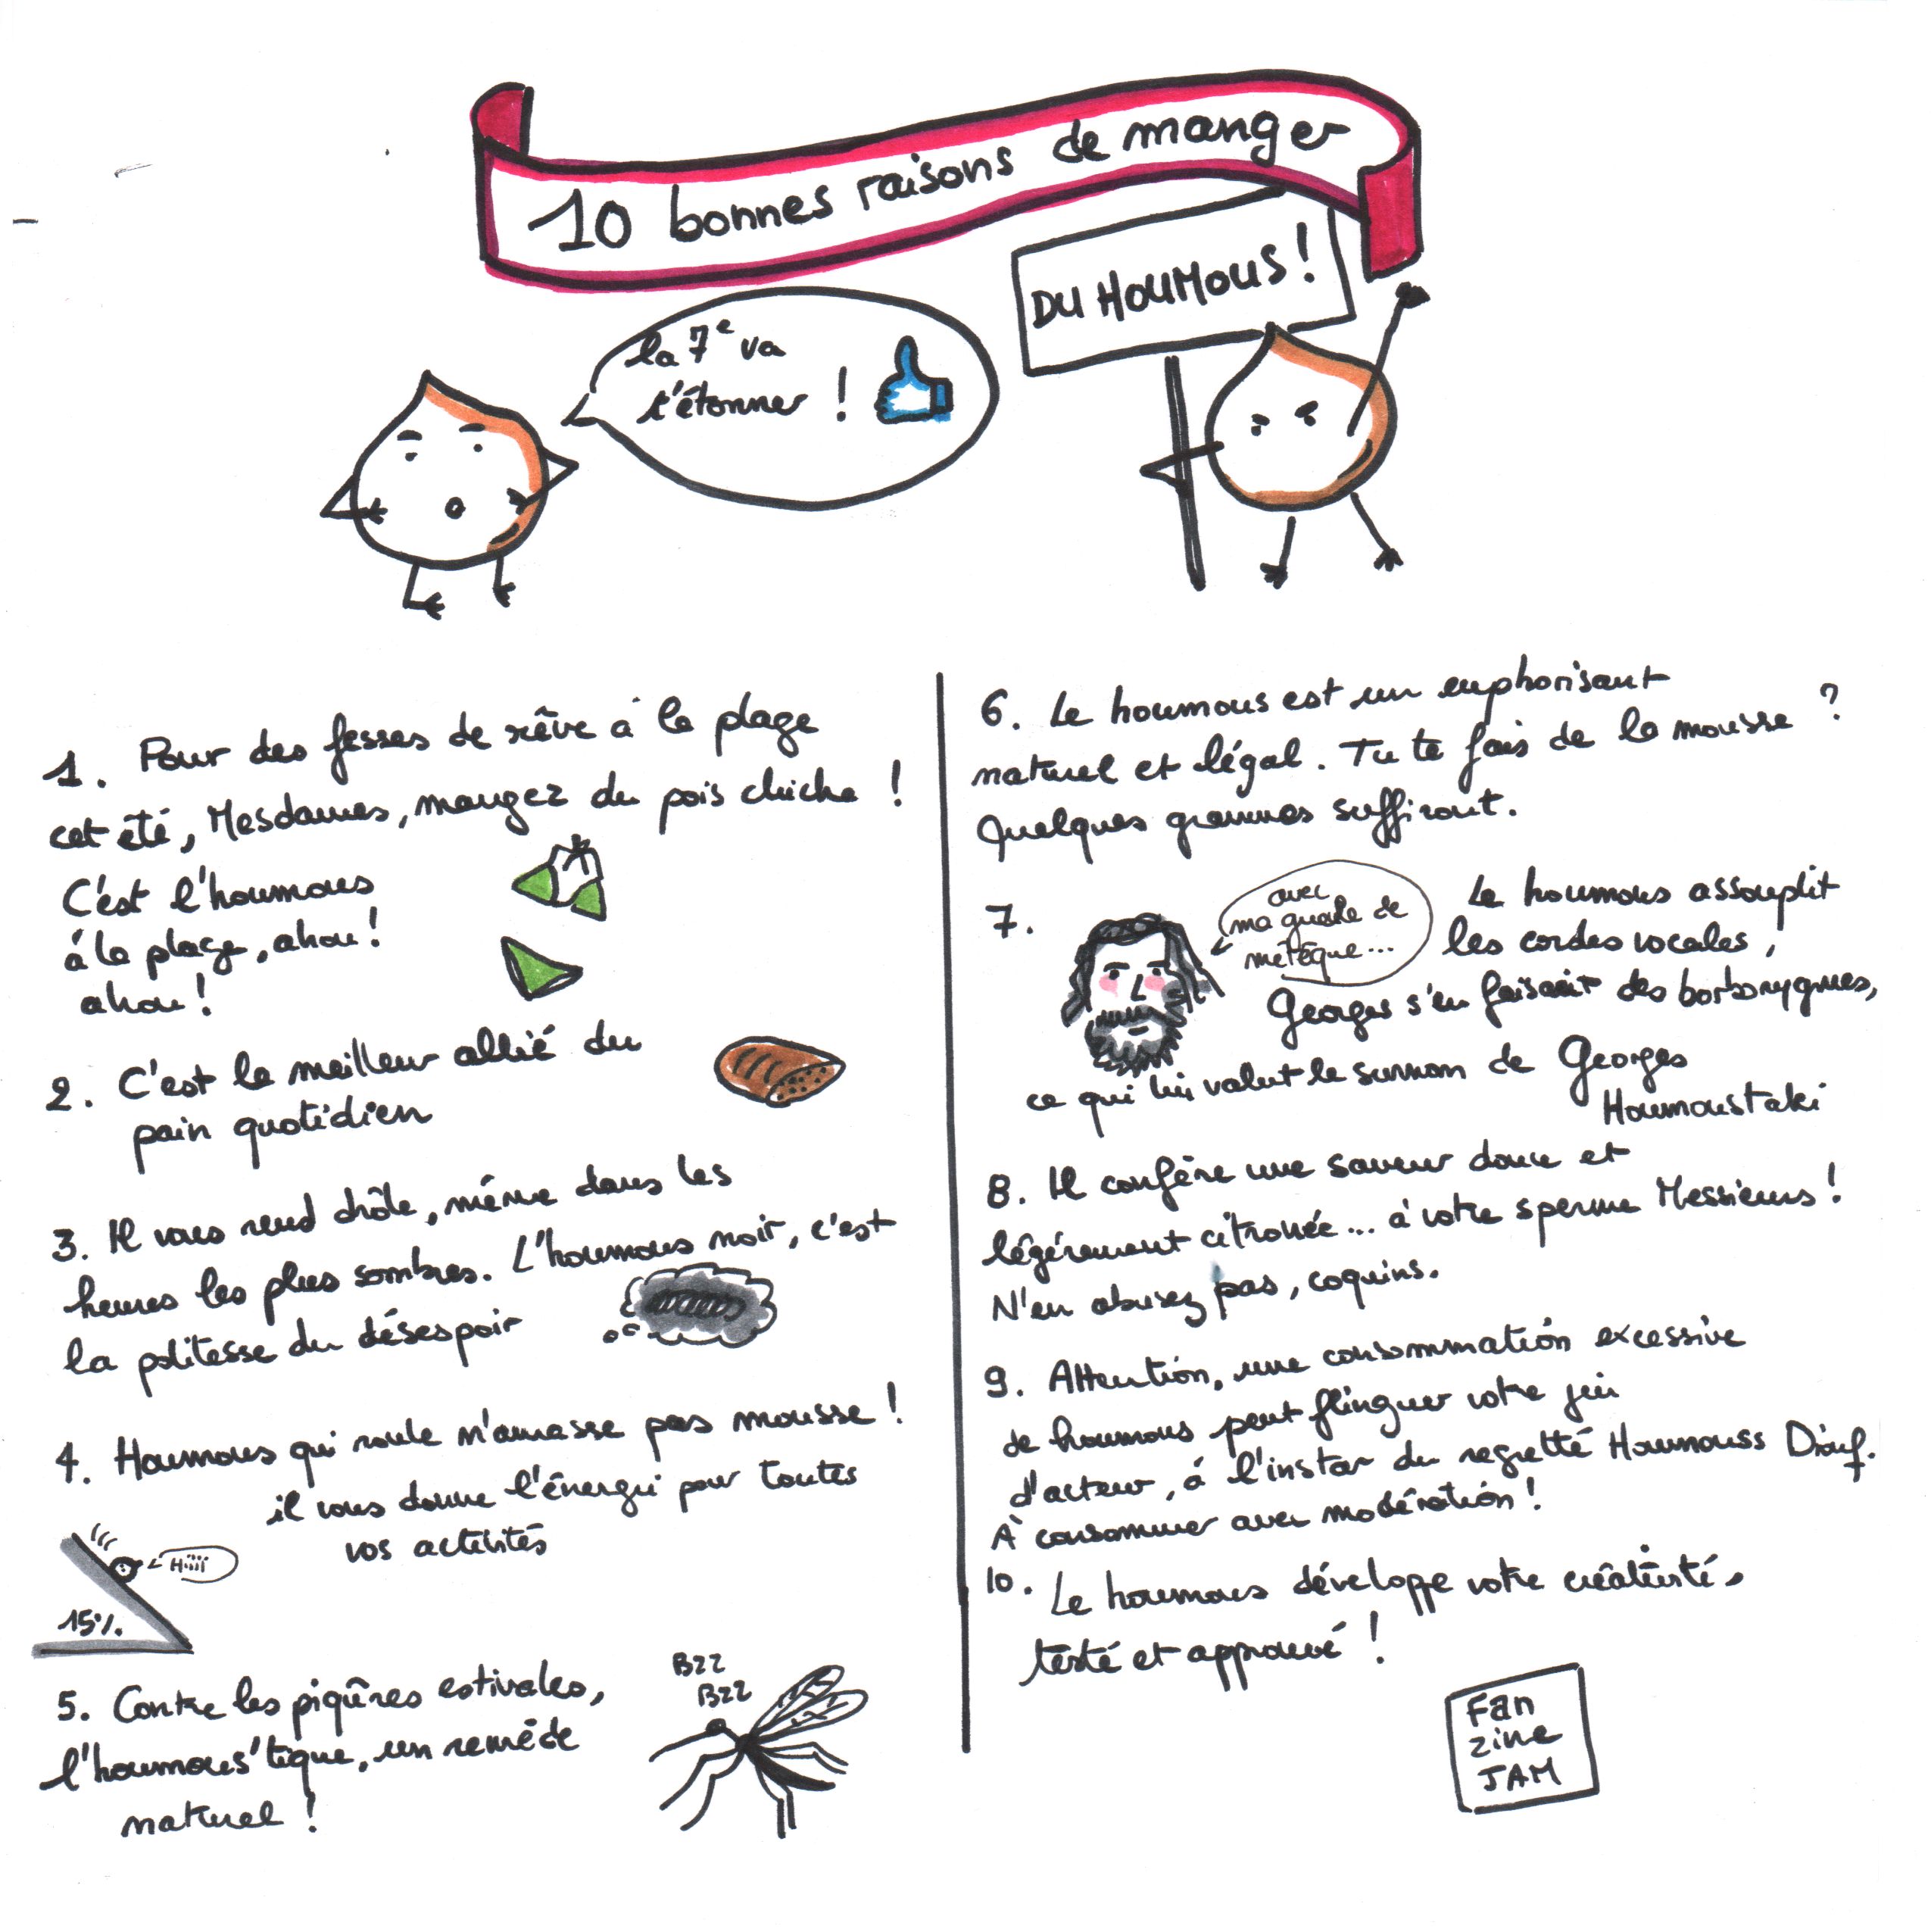 10 bonnes raisons de manger
DU HOUMOUS !
la 7e va
t'étonner !
1. Pour des fesses de rêve à la plage
cet été, Mesdames, mangez du pois chiche !
C'est l'houmous
à la plage, ahou !
ahou !
2. C'est le meilleur allié du
pain quotidien
3. Il vous rend drôle, même dans les
heures les plus sombres. L'houmous noir, c'est
la politesse du désespoir
4. Houmous qui roule n'amasse pas mousse !
il vous donne l'énergie pour toutes
vos activités
Hiiii
15%
5. Contre les piqûres estivales,
l'houmous'tique, un remède
naturel !
BZZ
BZZ
6. Le houmous est un euphorisant
naturel et légal. Tu te fais de la mousse ?
Quelques grammes suffiront.
7. Le houmous assouplit
les cordes vocales,
avec
ma gueule de
métèque...
Georges s'en faisait des borborygmes,
ce qui lui valut le surnom de Georges
Houmoustaki
8. Il confère une saveur douce et
légèrement citronée... à votre sperme Messieurs !
N'en abusez pas, coquins.
9. Attention, une consommation excessive
de houmous peut flinguer votre jeu
d'acteur, à l'instar du regretté Houmouss Diouf.
À consommer avec modération !
10. Le houmous développe votre créativité,
testé et approuvé !
Fan
zine
JAM